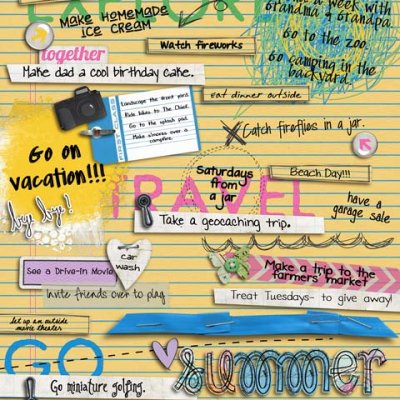 EXPLORE
MAKE HOMEMADE
ICE CREAM
a week with
Grandma & Grandpa.
Watch fireworks
Go to the zoo.
together
Go camping in the
backyard.
Make dad a cool birthday cake.
eat dinner outside
Landscape the front yard.
Ride bikes to The Chief.
Go to the splash pad.
Make s'mores over a
campfire.
Catch fireflies in a jar.
Go on
vacation!!!
bye bye!
Saturdays
from
a jar
Beach Day!!!
TRAVEL
have a
garage sale
Take a geocaching trip.
car
wash
See a Drive-In Movie
Make a trip to the
farmers' market
Invite friends over to play
Treat Tuesdays- to give away!
set up an outside
movie theater
GO
summer
Go miniature golfing.